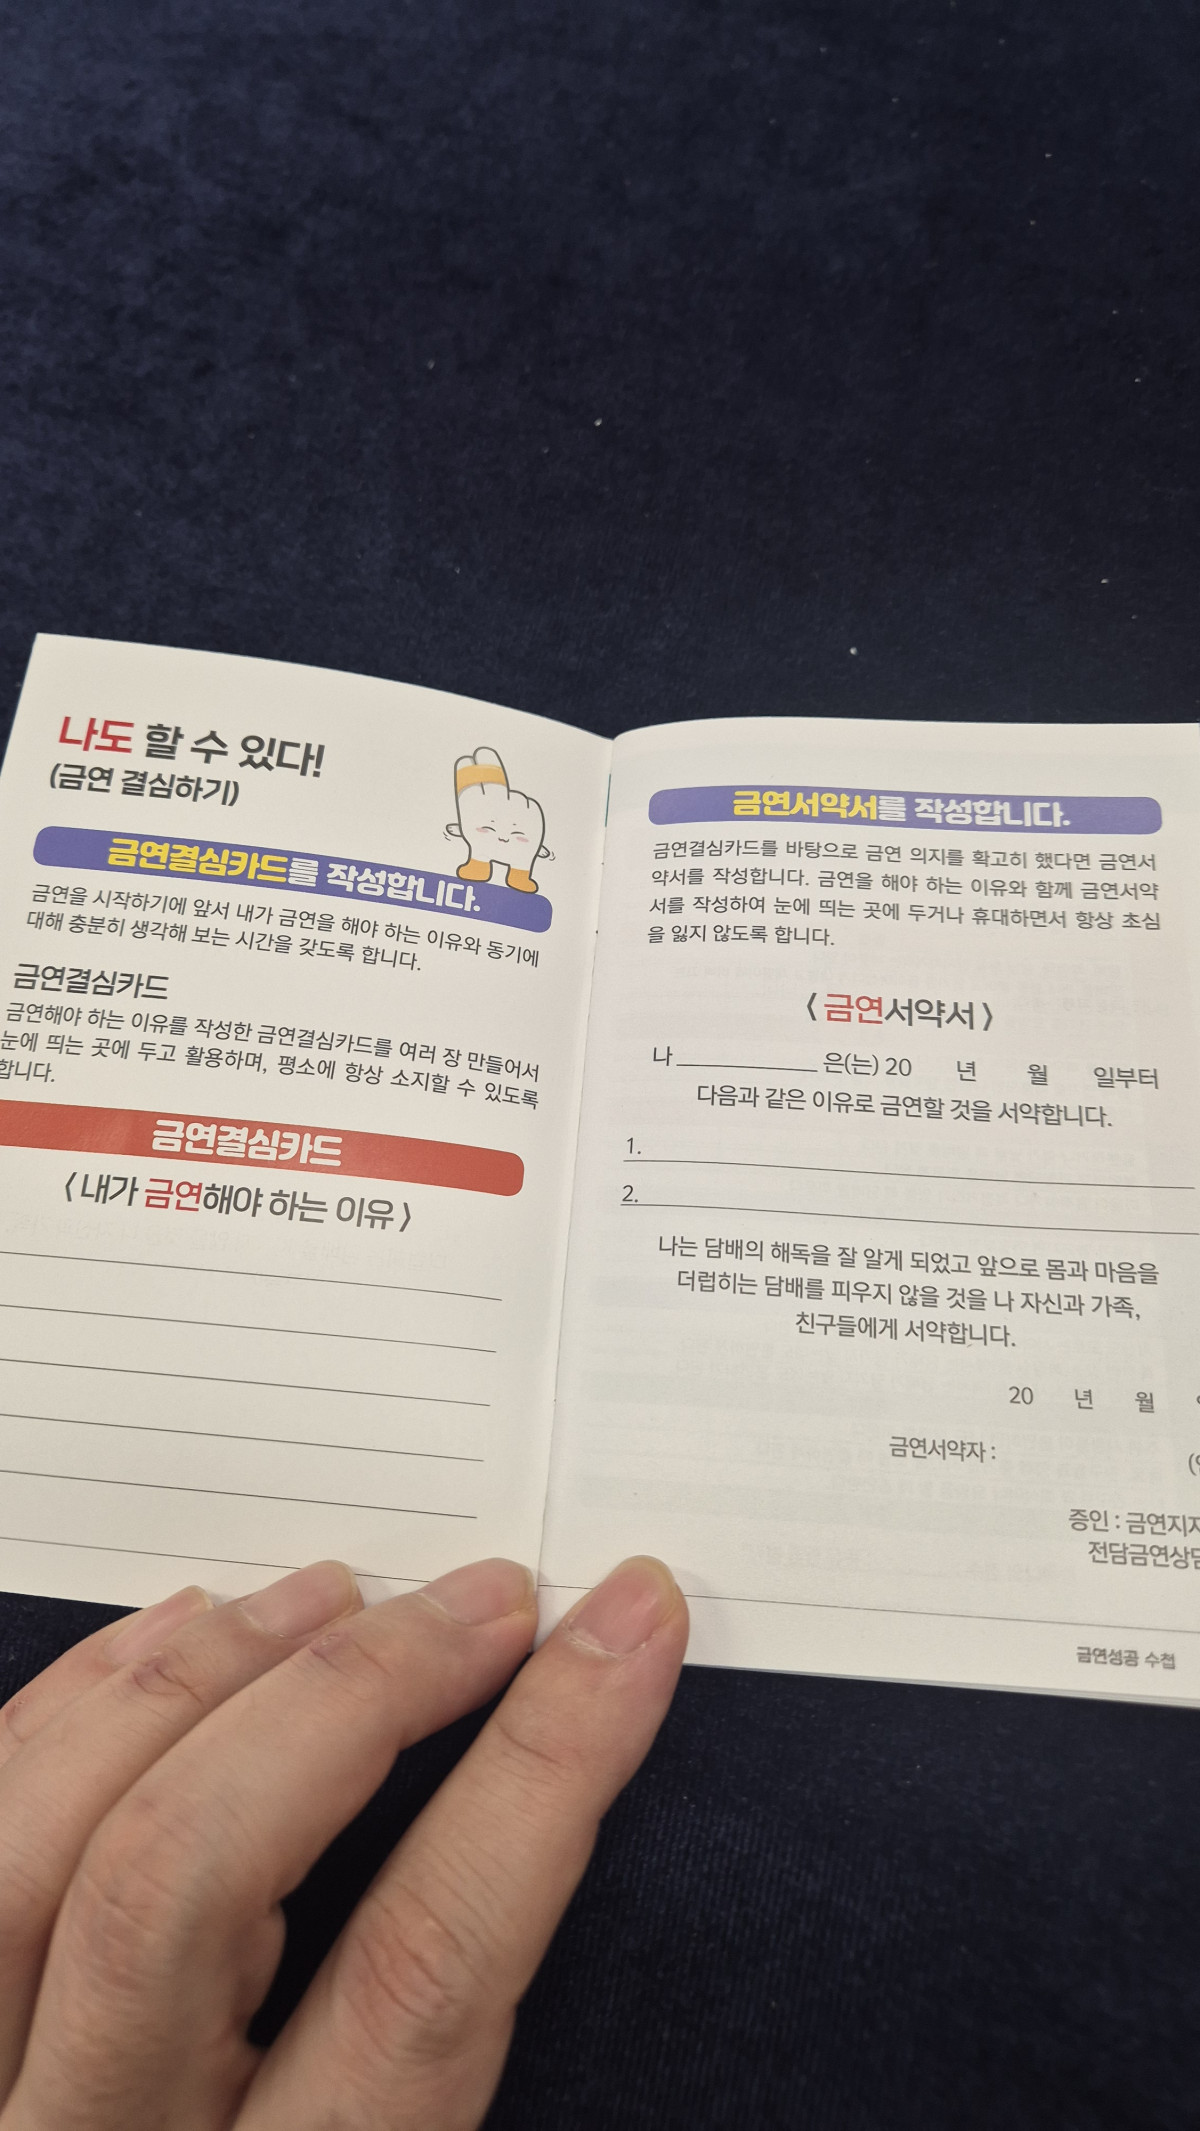 나도 할 수 있다!
(금연 결심하기)
금연결심카드를 작성합니다.
금연을 시작하기에 앞서 내가 금연을 해야 하는 이유와 동기에
대해 충분히 생각해 보는 시간을 갖도록 합니다.
금연결심카드
금연해야 하는 이유를 작성한 금연결심카드를 여러 장 만들어서
눈에 띄는 곳에 두고 활용하며, 평소에 항상 소지할 수 있도록
합니다.
금연결심카드
〈내가 금연해야 하는 이유〉
금연서약서를 작성합니다.
금연결심카드를 바탕으로 금연 의지를 확고히 했다면 금연서
약서를 작성합니다. 금연을 해야 하는 이유와 함께 금연서약
서를 작성하여 눈에 띄는 곳에 두거나 휴대하면서 항상 초심
을 잃지 않도록 합니다.
〈금연서약서〉
나 은(는) 20 년 월 일부터
다음과 같은 이유로 금연할 것을 서약합니다.
1.
2.
나는 담배의 해독을 잘 알게 되었고 앞으로 몸과 마음을
더럽히는 담배를 피우지 않을 것을 나 자신과 가족,
친구들에게 서약합니다.
20 년 월
금연서약자 :
증인 : 금연지
전담금연상
금연성공 수첩